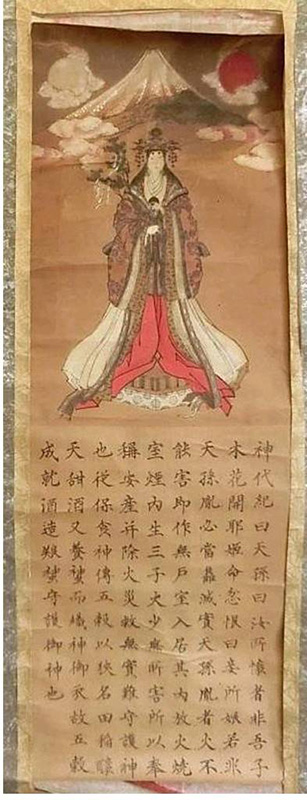 神代紀曰天孫曰汝所懐者非吾子
木花開耶姫命忽恨曰妾所娠若非
天孫胤必當滅實天孫胤者火不
能害即作無戸室入居其内放火焼
室煙内生三子火少無所害所以奉
稱安産并除火災救無實難守護神
也従保食神傳五穀以狭名田稲醸
天甜酒又而織神御衣故五穀
成就酒造守護御神也